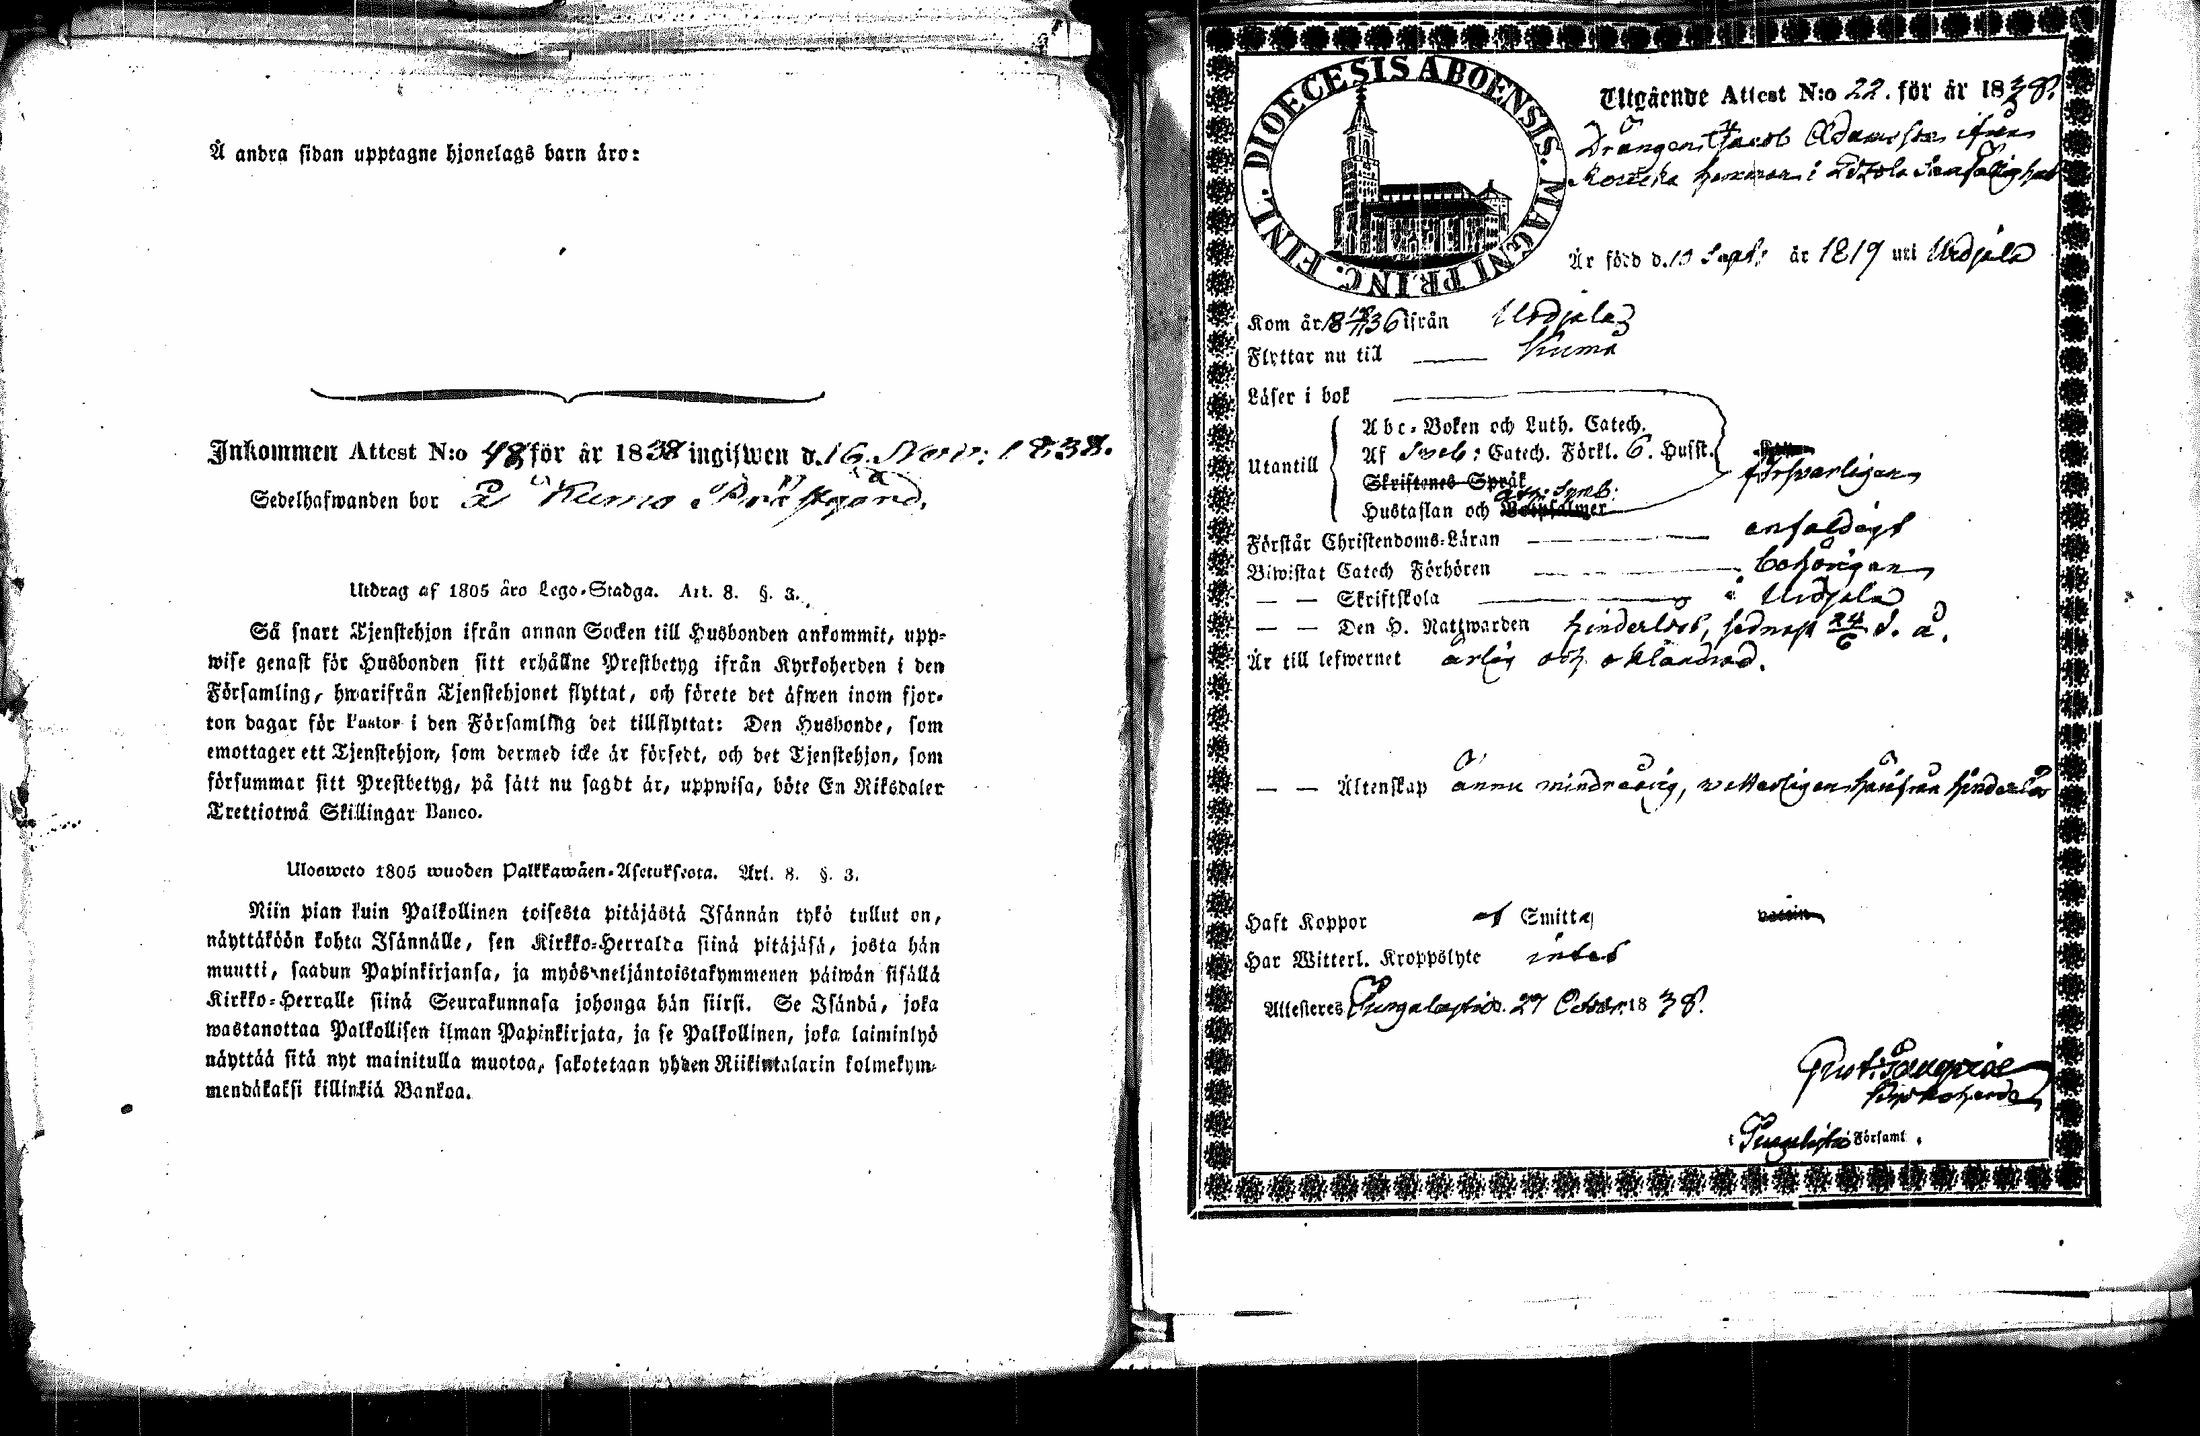 Å andra sidan upptagne hjonelags barn äro:
Inkommen Attest N:o 48 för år 1838 ingifwen d. 16. Nov: 1838.
Sedelhafwanden bor På Kumo Prästgård.
Utdrag af 1805 års Lego-Stadga. Art. 8. §. 3.
Så snart Tjenstehjon ifrån annan Socken till Husbonden ankommit, upp-
wise genast för Husbonden sitt erhållne Prestbetyg ifrån Kyrkoherden i den
Församling, hwarifrån Tjenstehjonet flyttat, och förete det äfwen inom fjor-
ton dagar för Pastor i den Församling det tillflyttat: Den Husbonde, som
emottager ett Tjenstehjon, som dermed icke är försedt, och det Tjenstehjon, som
försummar sitt Prestbetyg, på sätt nu sagdt är, uppwisa, böte En Riksdaler
Trettiotwå Skillingar Banco.
Ulosweto 1805 wuoden Palkkawäen-Asetuksesta. Art. 8. §. 3.
Niin pian kuin Palkollinen toisesta pitäjästä Isännän tykö tullut on,
näyttäköön kohta Isännälle, sen Kirkko-Herralta siinä pitäjäsä, josta hän
muutti, saadun Papinkirjansa, ja myös neljäntoistakymmenen päiwän sisällä
Kirkko-Herralle siinä Seurakunnasa johonga hän siirsi. Se Isändä, joka
wastanottaa Palkollisen ilman Papinkirjata, ja se Palkollinen, joka laiminlyö
näyttää sitä nyt mainitulla muotoa, sakotetaan yhden Riikintalarin kolmekym-
mendäkaksi killinkiä Bankoa.
DIOECESIS ABOENSIS. MAGNI PRINC. FINL.
Utgående Attest N:o 22. för år 1838.
Drängen Jacob Adamsson ifrån
hemman i
Är född d. 10 Sept: år 1819 uti Urdjala
Kom år 1836 ifrån Urdjala
Flyttar nu till Kumo
Läser i bok
Utantill
Abc-Boken och Luth. Catech.
Af Sweb: Catech. Förkl. 6. Husst.
försvarligen
Skriftenes Språk
Hustaflan och
Förstår Christendoms-Läran enfaldigt
Biwistat Catech Förhören behörigen
— — Skriftskola i Urdjala
— — Den H. Nattwarden hinderlöst, sednast 24/6 d. å.
Är till lefwernet ärlig och oklandrad.
— — Äktenskap ännu minderårig, vetterligen härifrån hinderlös
Haft Koppor af Smitta
Har Witterl. Kroppslyte intet
Attesteres d. 27 Octobr. 1838.
Gust.
Kyrkoherde
i Församl.